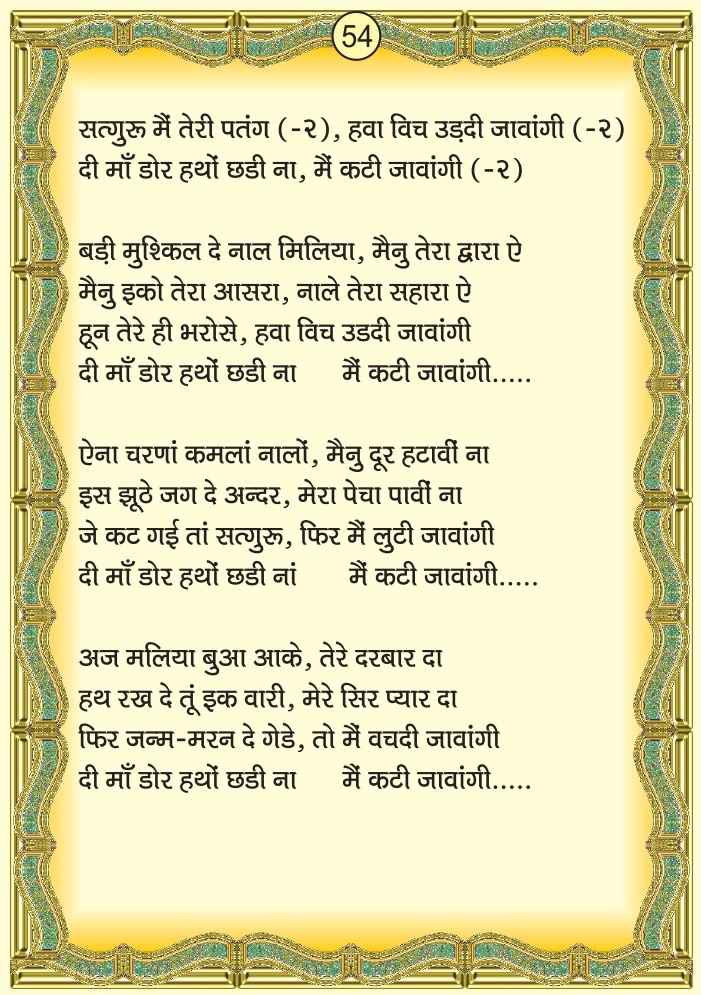 54
सत्गुरू मैं तेरी पतंग (-२), हवा विच उड़दी जावांगी (-२)
दी माँ डोर हथों छडी ना, मैं कटी जावांगी (-२)
बड़ी मुश्किल दे नाल मिलिया, मैनु तेरा द्वारा ऐ
मैनु इको तेरा आसरा, नाले तेरा सहारा ऐ
हून तेरे ही भरोसे, हवा विच उडदी जावांगी
दी माँ डोर हथों छडी ना मैं कटी जावांगी.....
ऐना चरणां कमलां नालों, मैनु दूर हटावीं ना
इस झूठे जग दे अन्दर, मेरा पेचा पावीं ना
जे कट गई तां सत्गुरू, फिर मैं लुटी जावांगी
दी माँ डोर हथों छडी नां मैं कटी जावांगी.....
अज मलिया बुआ आके, तेरे दरबार दा
हथ रख दे तूं इक वारी, मेरे सिर प्यार दा
फिर जन्म-मरन दे गेडे, तो मैं वचदी जावांगी
दी माँ डोर हथों छडी ना मैं कटी जावांगी.....